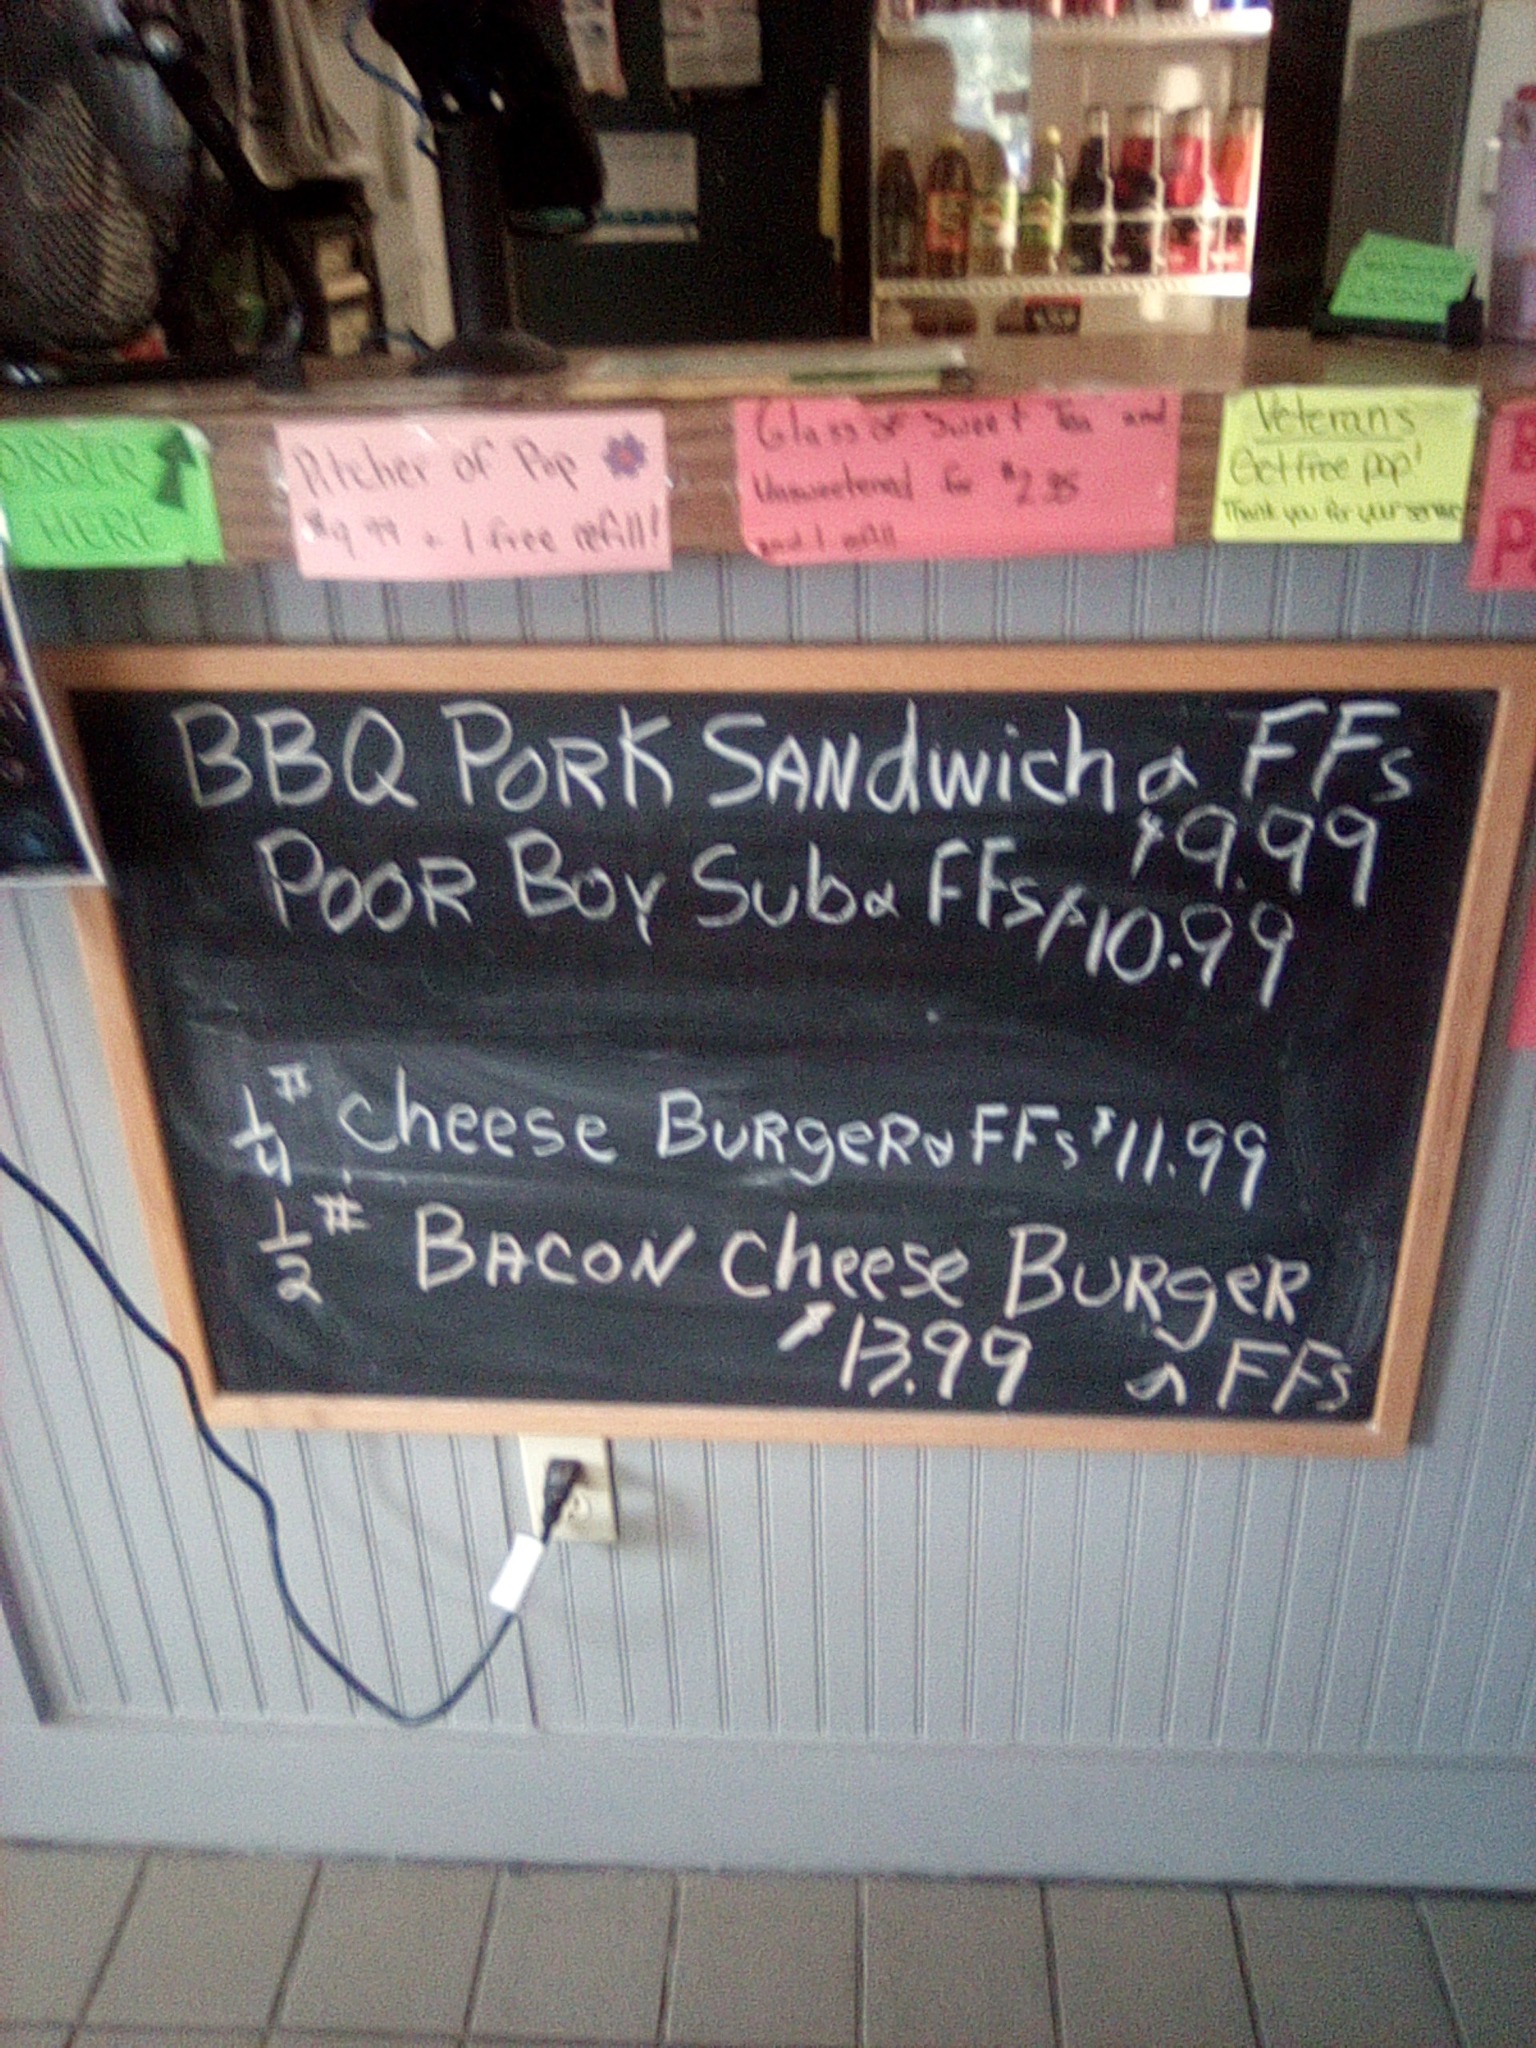 ORDER
HERE
Pitcher of Pop
$9.99 + 1 free refill!
Glass of Sweet Tea and
Unsweetened for $2.35
and 1 refill
Veterans
Get free pop!
Thank you for your service
BBQ PORK SANdwich & FFs
$9.99
POOR BOY Sub & FFs $10.99
1/4 # Cheese BURGER & FFs $11.99
1/2 # BACON Cheese BURGER
$13.99 & FFs